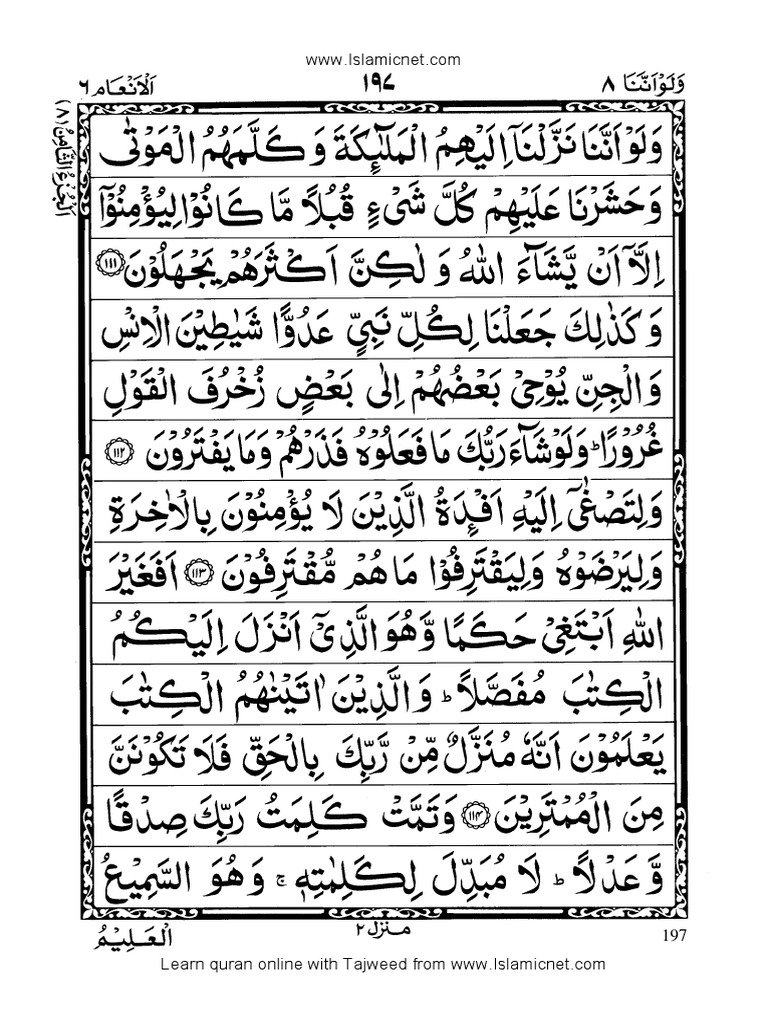 www.Islamicnet.com
وَلَوْاَنَّنَا ٨
١٩٧
اَلْاَنْعَام ٦
اَلْجُزْءُ الثَّامِنُ (٨)
وَلَوْ اَنَّنَا نَزَّلْنَاۤ اِلَيْهِمُ الْمَلٰٓئِكَةَ وَ كَلَّمَهُمُ الْمَوْتٰى
وَحَشَرْنَا عَلَيْهِمْ كُلَّ شَیْءٍ قُبُلًا مَّا كَانُوْا لِيُؤْمِنُوْۤا
اِلَّاۤ اَنْ يَّشَآءَ اللّٰهُ وَ لٰكِنَّ اَكْثَرَهُمْ يَجْهَلُوْنَ ﴿١١١﴾
وَ كَذٰلِكَ جَعَلْنَا لِكُلِّ نَبِیٍّ عَدُوًّا شَيٰطِيْنَ الْاِنْسِ
وَالْجِنِّ يُوْحِیْ بَعْضُهُمْ اِلٰى بَعْضٍ زُخْرُفَ الْقَوْلِ
غُرُوْرًا ؕ وَلَوْ شَآءَ رَبُّكَ مَا فَعَلُوْهُ فَذَرْهُمْ وَمَا يَفْتَرُوْنَ ﴿١١٢﴾
وَلِتَصْغٰۤى اِلَيْهِ اَفْـِٕدَةُ الَّذِيْنَ لَا يُؤْمِنُوْنَ بِالْاٰخِرَةِ
وَلِيَرْضَوْهُ وَلِيَقْتَرِفُوْا مَا هُمْ مُّقْتَرِفُوْنَ ﴿١١٣﴾ اَفَغَيْرَ
اللّٰهِ اَبْتَغِیْ حَكَمًا وَّهُوَ الَّذِیْۤ اَنْزَلَ اِلَيْكُمُ
الْكِتٰبَ مُفَصَّلًا ؕ وَالَّذِيْنَ اٰتَيْنٰهُمُ الْكِتٰبَ
يَعْلَمُوْنَ اَنَّهٗ مُنَزَّلٌ مِّنْ رَّبِّكَ بِالْحَقِّ فَلَا تَكُوْنَنَّ
مِنَ الْمُمْتَرِيْنَ ﴿١١٤﴾ وَتَمَّتْ كَلِمَتُ رَبِّكَ صِدْقًا
وَّعَدْلًا ؕ لَا مُبَدِّلَ لِكَلِمٰتِهٖ ۚ وَهُوَ السَّمِيْعُ
الْعَلِيْمُ
منزل ٢
197
Learn quran online with Tajweed from www.Islamicnet.com